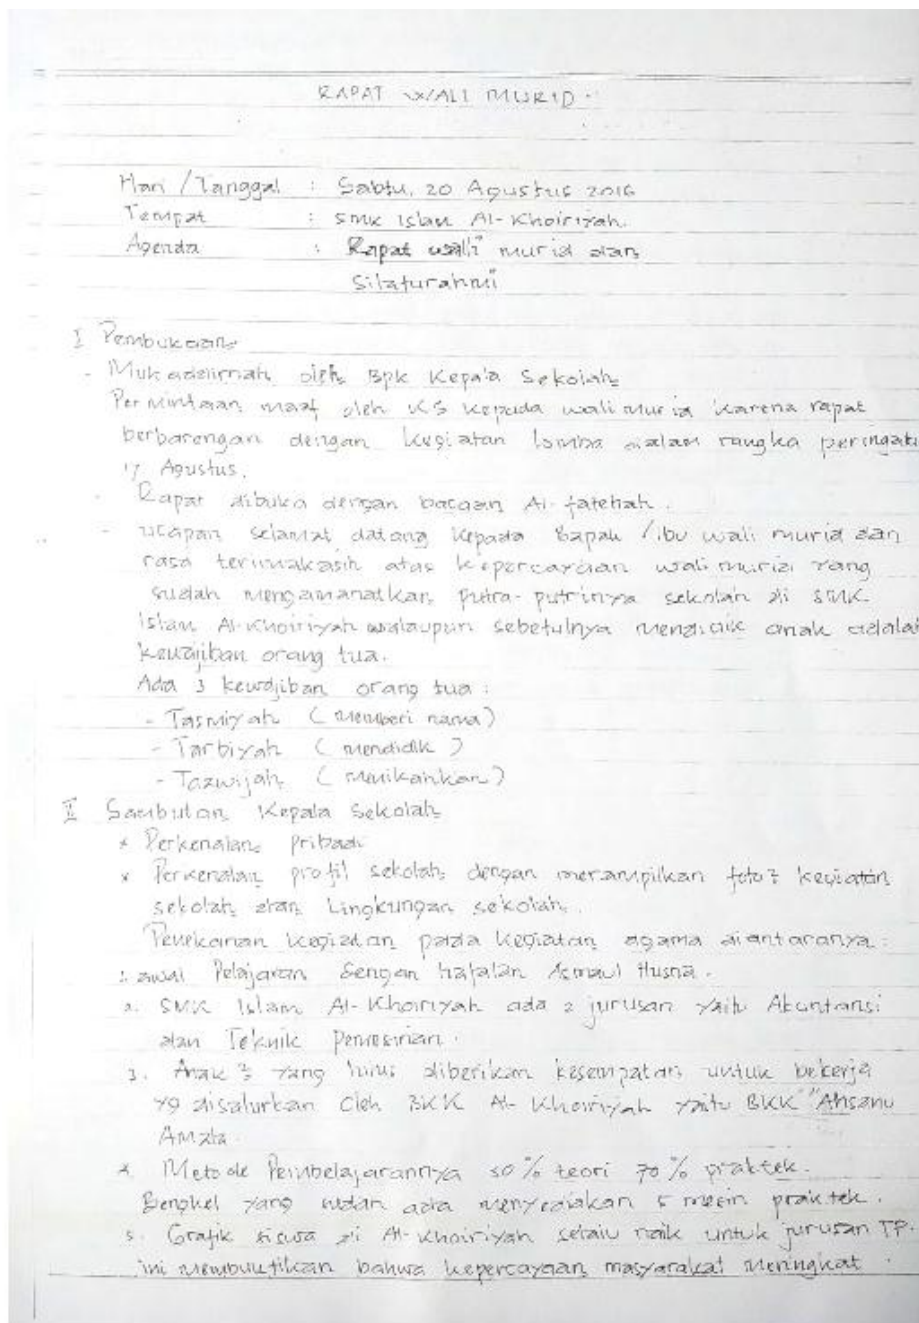 RAPAT WALI MURID.
Hari / Tanggal : Sabtu, 20 Agustus 2016
Tempat : SMK Islam Al-Khoiriyah.
Agenda : Rapat wali murid dan
Silaturahmi
I Pembukaan
- Mukadelimah oleh Bpk Kepala Sekolah
Permintaan maaf oleh KS kepada wali murid karena rapat
berbarengan dengan kegiatan lomba dalam rangka peringata
17 Agustus.
- Rapat dibuka dengan bacaan Al-fatehah.
- Ucapan selamat datang kepada Bapak / ibu wali murid dan
rasa terimakasih atas kepercayaan wali murid yang
sudah mengamanatkan putra-putrinya sekolah di SMK
Islam Al-Khoiriyah walaupun sebetulnya mendidik anak adalah
kewajiban orang tua.
Ada 3 kewajiban orang tua :
- Tasmiyah (memberi nama)
- Tarbiyah (mendidik)
- Tazwijah (menikahkan)
II Sambutan Kepala Sekolah
* Perkenalan pribadi
* Perkenalan profil sekolah dengan menampilkan foto2 kegiatan
sekolah dan Lingkungan sekolah.
Penekanan kegiatan pada kegiatan agama diantaranya :
1. awal Pelajaran dengan hafalan Asmaul Husna.
2. SMK Islam Al-Khoiriyah ada 2 jurusan yaitu Akuntansi
dan Teknik Pemesinan.
3. Anak2 yang lulus diberikan kesempatan untuk bekerja
yg disalurkan oleh BKK Al-Khoiriyah yaitu BKK "Ahsanu
Amala
4. Metode Pembelajarannya 30% teori 70% praktek.
Bengkel yang sudah ada menyediakan 5 mesin praktek.
5. Grafik siswa di Al-Khoiriyah selalu naik untuk jurusan TP.
ini membuktikan bahwa kepercayaan masyarakat meningkat.